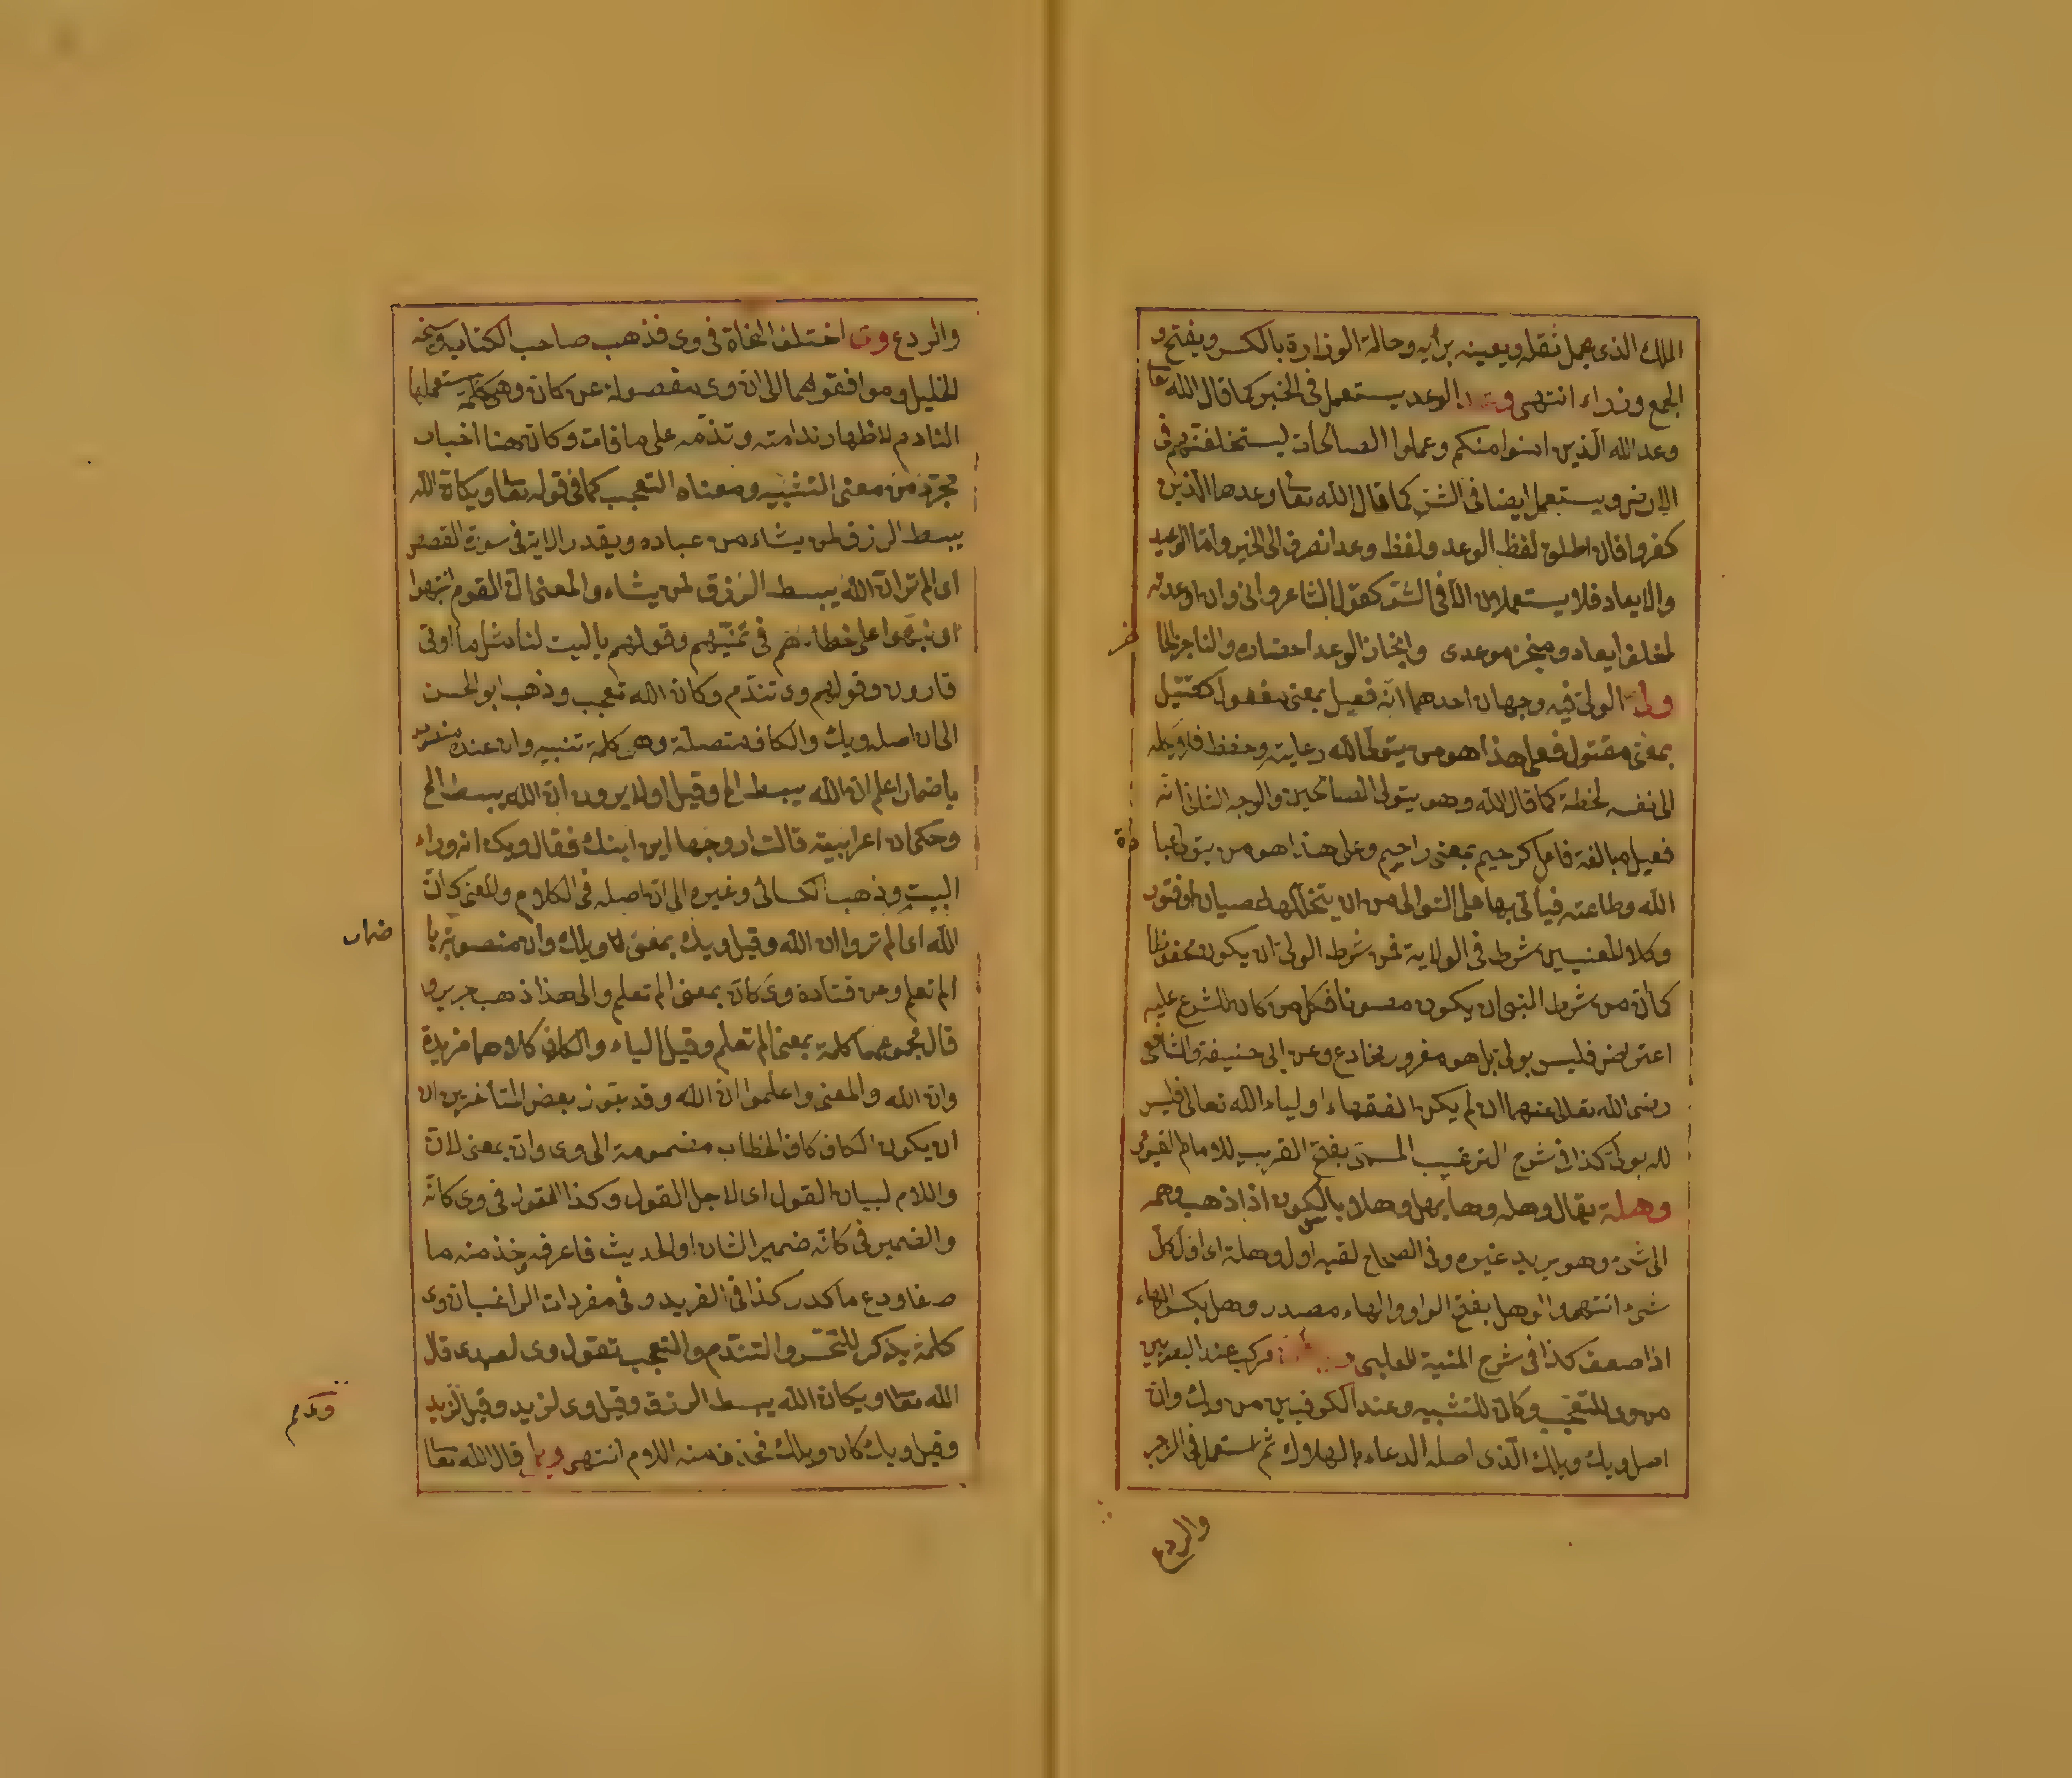 الملك الذى يحمل ثقله ويعينه برأيه وحالة الوزارة بالكسر ويفتح و
الجمع وزراء انتهى وعد الوعد يستعمل فى الخير كما قال الله تعا
وعد الله الذين امنوا منكم وعملوا الصالحات ليستخلفنهم فى
الارض ويستعمل ايضا فى الشر كما قال الله تعا وعدها الذين
كفروا فان اطلق لفظ الوعد ولفظ وعد انصرف الى الخير وأما الوعيد
والايعاد فلا يستعملان الا فى الشر كقول الشاعر وانى وان اوعدته
لمخلف ايعاد ومنجز موعدى وانجاز الوعد احضاره والناجز الحا
ضر
ولى الولى فيه وجهان احدهما انه فعيل بمعنى مفعول كقتيل
بمعنى مقتول فعلى هذا هو من يتولى الله رعايته وحفظه فلا يكله
الى نفسه لحظة كما قال الله وهو يتولى الصالحين والوجه الثانى انه
فعيل مبالغة فاعل كرحيم بمعنى راحم وعلى هذا هو من يتولى عبا
دة
الله وطاعته فيأتى بها على التوالى من ان يتخللها عصيان او فتور
وكلا المعنيين شرط فى الولاية فمن شرط الولى ان يكون محفوظا
كما ان من شرط النبى ان يكون معصونا فكل من كان للشرع عليه
اعتراض فليس بولى بل هو مغرور مخادع وعن ابى حنيفة والشافعى
رضى الله تعالى عنهما ان لم يكن الفقهاء اولياء الله تعالى فليس
لله بولى كذا فى شرح الترغيب المسمى بفتح القريب للامام الفيومى
وهلة يقال وهله وها يهل وهلا بالسكون اذا ذهب وهمه
الى شئ وهو يريد غيره وفى الصحاح لقيه اول وهلة اى اول كل
شئ انتهى والوهل بفتح الواو والهاء مصدر وهل بكسر الهاء
اذا ضعف كذا فى شرح المنية للحلبى مركب عند البصريين
من وى للتعجب وكان للتشبيه وعند الكوفيين من ويك وان
اصل ويك ويلك الذى اصله الدعاء بالهلاك ثم استعمل فى الزجر
والردع
والردع وى اختلف النحاة فى وى فذهب صاحب الكتاب وشيخه
الخليل وموافقوهما الى ان وى مفصولة عن كان وهى كلمة يستعملها
النادم لاظهار ندامته وتندمه على ما فات وكان هنا اخبار
مجرد من معنى التشبيه ومعناه التعجب كما فى قوله تعا ويكأن الله
يبسط الرزق لمن يشاء من عباده ويقدر الاية فى سورة القصص
اى الم تر ان الله يبسط الرزق لمن يشاء والمعنى ان القوم انتبهوا
او نبهوا على خطاءهم فى تمنيهم وقولهم ياليت لنا مثل ما اوتى
قارون وقولهم وى تندم وكان الله تعجب وذهب ابو الحسن
الى ان اصله ويك والكاف متصلة وهى كلمة تنبيه وان عنده منصوب
باضمار اعلم ان الله يبسط الخ وقيل اولا يرون ان الله يبسط الخ
وحكى ان اعرابية قالت لزوجها اين ابنك فقال ويك انه وراء
البيت وذهب الكسائى وغيره الى ان اصله فى الكلام والمعنى كان
الله اى الم تروا ان الله وقيل ويك بمعنى لا ويلك وان منصوبة با
ضمار
الم تعلم وعن قتادة وى كان بمعنى الم تعلم والى هذا ذهب جرير و
قال مجموعهما كلمة بمعنى الم تعلم وقيل الياء والكاف كلاهما مزيدة
وان الله والمعنى واعلموا ان الله وقد يجوز بعض المتأخرين ان
ان يكون الكاف كاف الخطاب مضمومة الى وى وان بمعنى لان
واللام لبيان القول اى لاجل القول وكذا القول فى وى كانه
والضمير فى كانه ضمير الشان او الحديث فاعرفه وخذ منه ما
صفا ودع ما كدر كذا فى الفريد وفى مفردات الراغب ان وى
كلمة يذكر للتحسر والتندم والتعجب تقول وى لعبدى قال
الله تعا ويكان الله يبسط الرزق وقيل وى لزيد وقيل لزيد
وقيل ويك كان ويلك فحذف منه اللام انتهى قال الله تعا